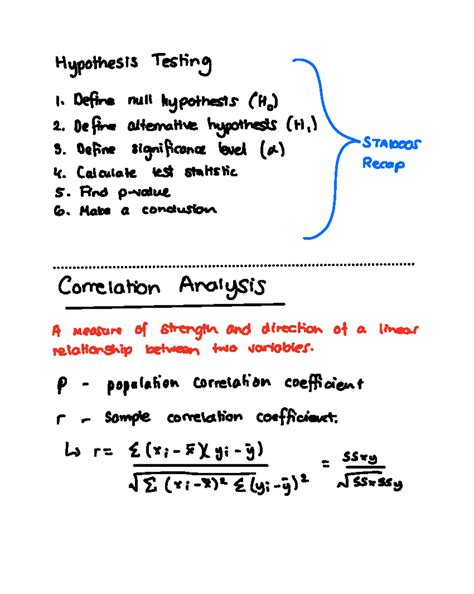 Hypothesis Testing
1. Define null hypothesis (H₀)
2. Define alternative hypothesis (H₁)
3. Define significance level (α)
4. Calculate test statistic
5. Find p-value
6. Make a conclusion
STA1000S
Recap
Correlation Analysis
A measure of strength and direction of a linear
relationship between two variables.
ρ - population correlation coefficient
r - sample correlation coefficient.
↳ r = Σ(xᵢ - x̄)(yᵢ - ȳ) / √Σ(xᵢ - x̄)² Σ(yᵢ - ȳ)² = SSxy / √SSxSSy